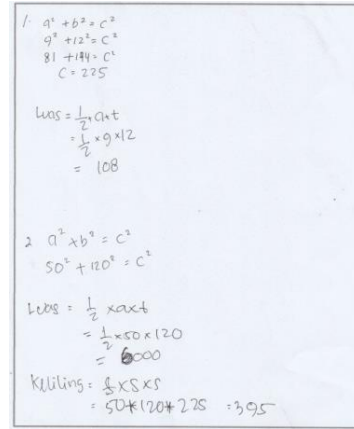 1. a² + b² = c²
9² + 12² = c²
81 + 144 = c²
c = 225
Luas = 1/2 × a × t
= 1/2 × 9 × 12
= 108
2 a² × b² = c²
50² + 120² = c²
Luas = 1/2 × a × t
= 1/2 × 50 × 120
= 6000
Keliling = × S × S
= 50 + 120 + 225 = 395